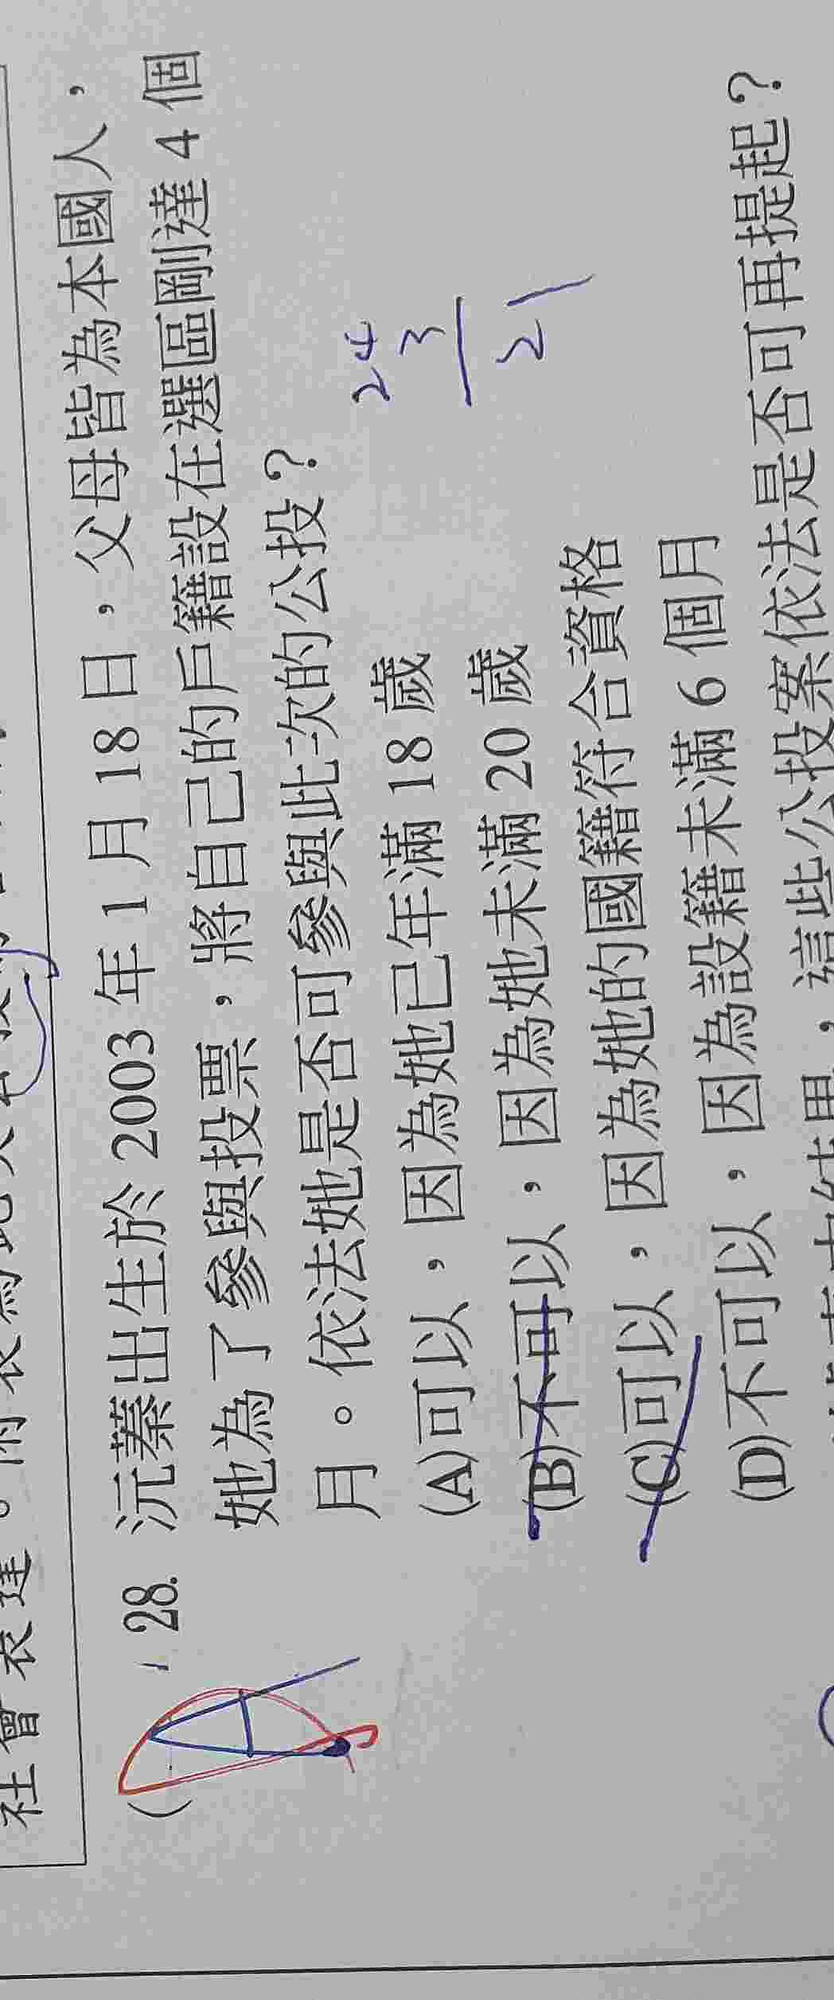 社會表達。
( ) 28. 沅蓁出生於 2003 年 1 月 18 日,父母皆為本國人,
她為了參與投票,將自己的戶籍設在選區剛達 4 個
月。依法她是否可參與此次的公投?
(A)可以,因為她已年滿 18 歲
(B)不可以,因為她未滿 20 歲
(C)可以,因為她的國籍符合資格
(D)不可以,因為設籍未滿 6 個月
24
3
21
A
D
這些公投案依法是否可再提起?